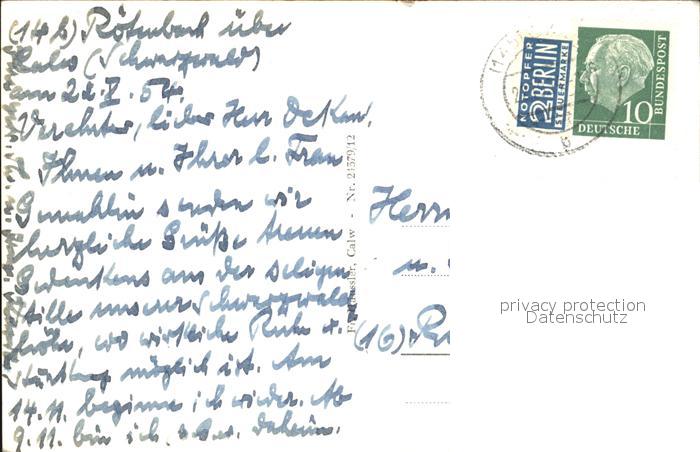 (14b) Rötenbach über
Calw (Schwarzwald)
am 22.X.54.
Verehrter, lieber Herr Dekan,
Ihnen u. Ihrer l. Frau
Gemahlin senden wir
herzliche Grüße treuen
Gedenkens aus der seligen
Stille unserer Schwarzwald
höhe, wo wirkliche Ruhe u.
Stärkung möglich ist. Am
14.11. beginne ich wieder. Ab
9.11. bin ich daheim.
Calw - Nr. 24579/12
NOTOPFER
2 BERLIN
STEUERMARKE
10
DEUTSCHE
BUNDESPOST
Herrn
u.
(16)
privacy protection
Datenschutz